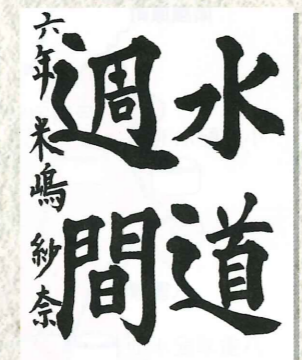 水道
週間
六年 米嶋 紗奈